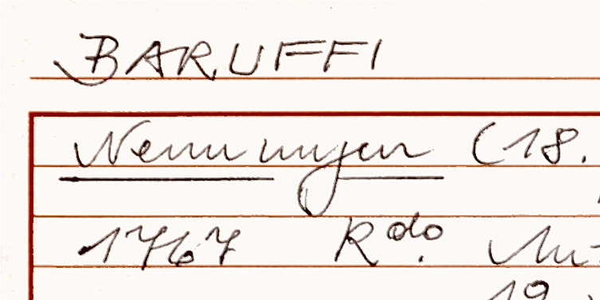 BARUFFI
Nennungen (18.
1767 Rdo.
19